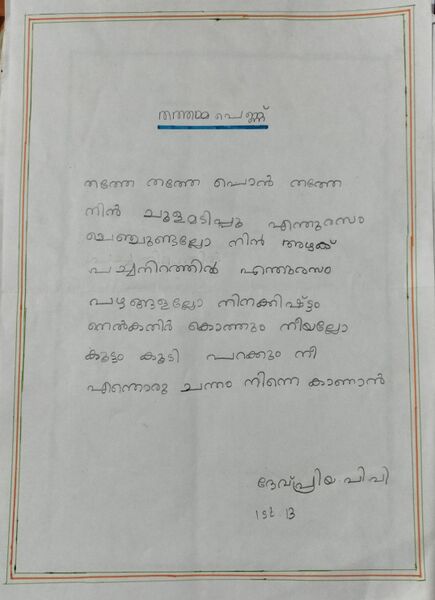 തത്തമ്മ പെണ്ണ്
തത്തേ തത്തേ പൊൻ തത്തേ
നിൻ ചൂളമടിപ്പു എന്തുരസം
ചെഞ്ചുണ്ടല്ലോ നിൻ അഴക്
പച്ചനിറത്തിൽ എന്തുരസം
പഴങ്ങളല്ലോ നിനക്കിഷ്ട്ടം
നെൽകതിർ കൊത്തും നീയല്ലോ
കൂട്ടം കൂടി പറക്കും നീ
എന്തൊരു ചന്തം നിന്നെ കാണാൻ
ദേവ്പ്രിയ പി പി
1st B